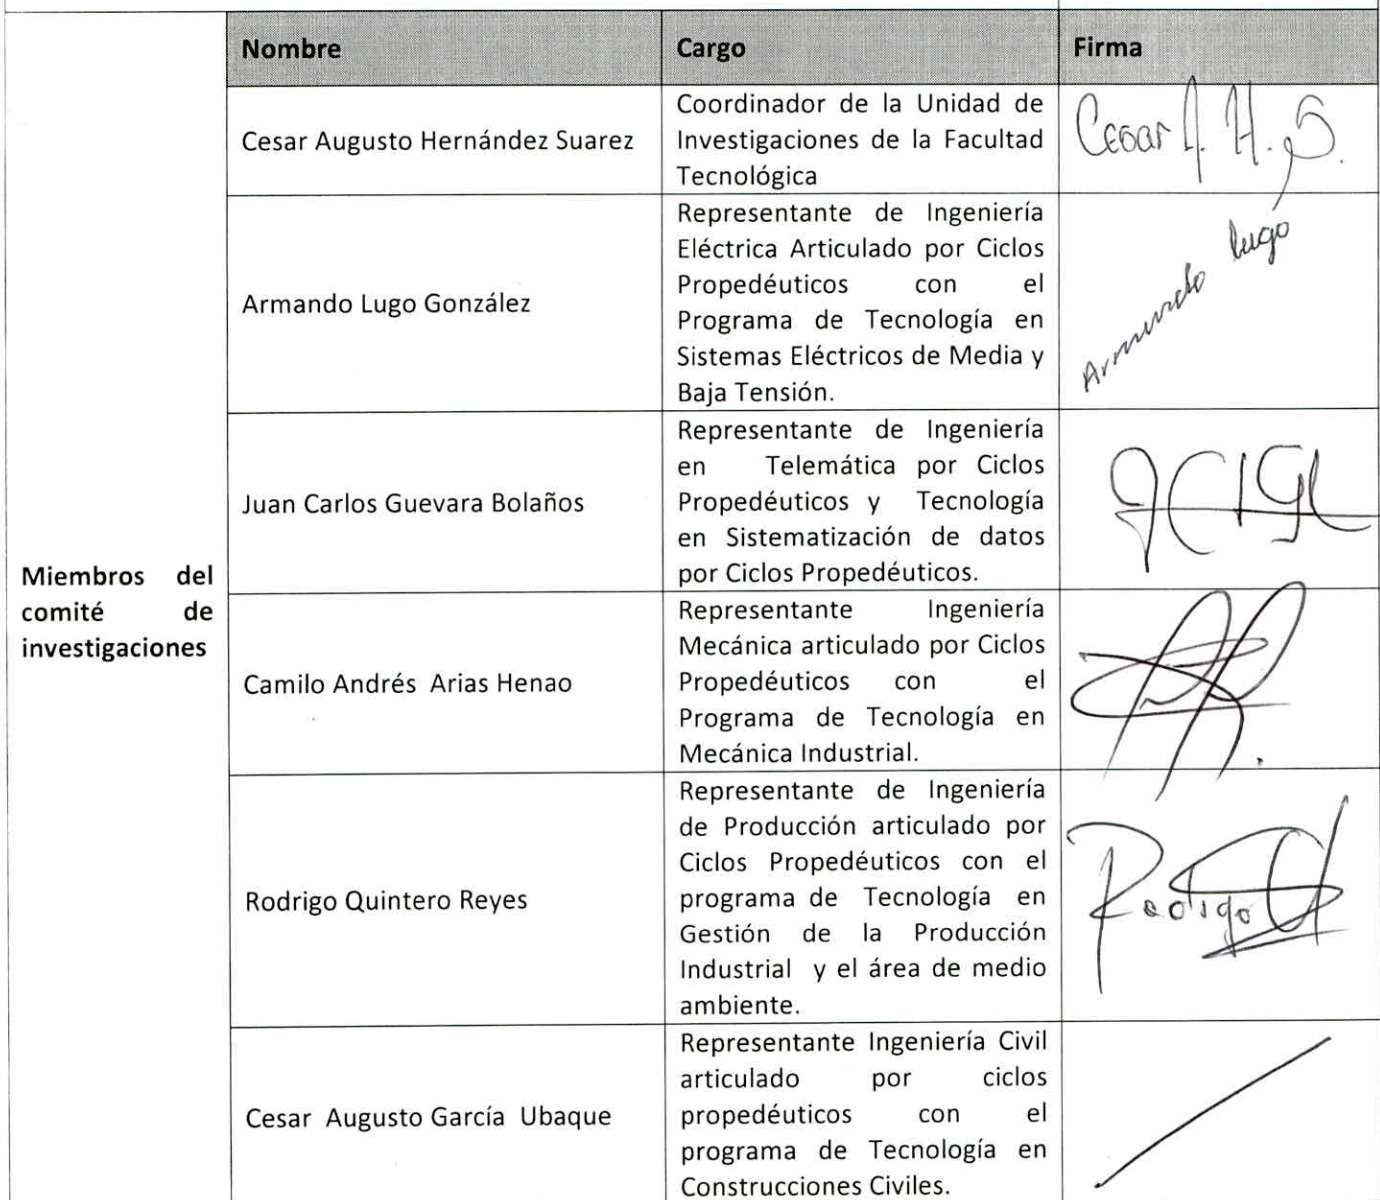 Nombre Cargo Firma
Miembros del
comité de
investigaciones
Cesar Augusto Hernández Suarez
Coordinador de la Unidad de
Investigaciones de la Facultad
Tecnológica
Cesar A. H. S.
Armando Lugo González
Representante de Ingeniería
Eléctrica Articulado por Ciclos
Propedéuticos con el
Programa de Tecnología en
Sistemas Eléctricos de Media y
Baja Tensión.
Armando Lugo
Juan Carlos Guevara Bolaños
Representante de Ingeniería
en Telemática por Ciclos
Propedéuticos y Tecnología
en Sistematización de datos
por Ciclos Propedéuticos.
Camilo Andrés Arias Henao
Representante Ingeniería
Mecánica articulado por Ciclos
Propedéuticos con el
Programa de Tecnología en
Mecánica Industrial.
Rodrigo Quintero Reyes
Representante de Ingeniería
de Producción articulado por
Ciclos Propedéuticos con el
programa de Tecnología en
Gestión de la Producción
Industrial y el área de medio
ambiente.
Rodrigo
Cesar Augusto García Ubaque
Representante Ingeniería Civil
articulado por ciclos
propedéuticos con el
programa de Tecnología en
Construcciones Civiles.